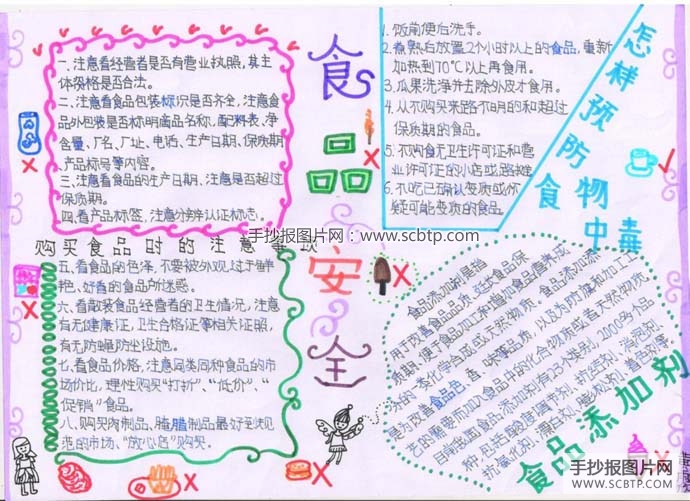 一.注意看经营者是否有营业执照,其主
体资格是否合法。
二、注意看食品包装标识是否齐全,注意食
品外包装是否标明商品名称、配料表、净
含量、厂名、厂址、电话、生产日期、保质期
产品标号等内容。
三、注意看食品的生产日期,注意是否超过
保质期。
四.看产品标签,注意分辨认证标志。
购买食品时的注意事项
五、看食品的色泽,不要被外观过于鲜
艳、好看的食品所迷惑。
六、看散装食品经营者的卫生情况,注意
有无健康证,卫生合格证等相关证照,
有无防蝇防尘设施。
七.看食品价格,注意同类同种食品的市
场价比,理性购买“打折”、“低价”、“
促销”食品。
八、购买肉制品、腊腊制品最好到规
范的市场、“放心店”购买。
食品安全
1.饭前便后洗手。
2.煮熟后放置2个小时以上的食品,重新
加热到70℃以上再食用。
3.瓜果洗净并去除外皮才食用。
4.从不购买来路不明的和超过
保质期的食品。
5.不购食无卫生许可证和营
业许可证的小店或路摊
6.不吃已确认变质或怀
疑可能变质的食品
怎样预防食物中毒
手抄报图片网:www.scbtp.com
食品添加剂是指
用于改善食品品质、延长食品保
质期、便于食品加工和增加食品营养成
分的一类化学合成或天然物质。食品添加剂
是为改善食品色、香、味等品质,以及为防腐和加工工
艺的需要而加入食品中的化合物质或者天然物质。
目前我国食品添加剂有23个类别,2000多个品
种,包括酸度调节剂、抗结剂、消泡剂、
抗氧化剂、漂白剂、膨松剂、着色剂等
食品添加剂
手抄报图片网
WWW.SCBTP.COM